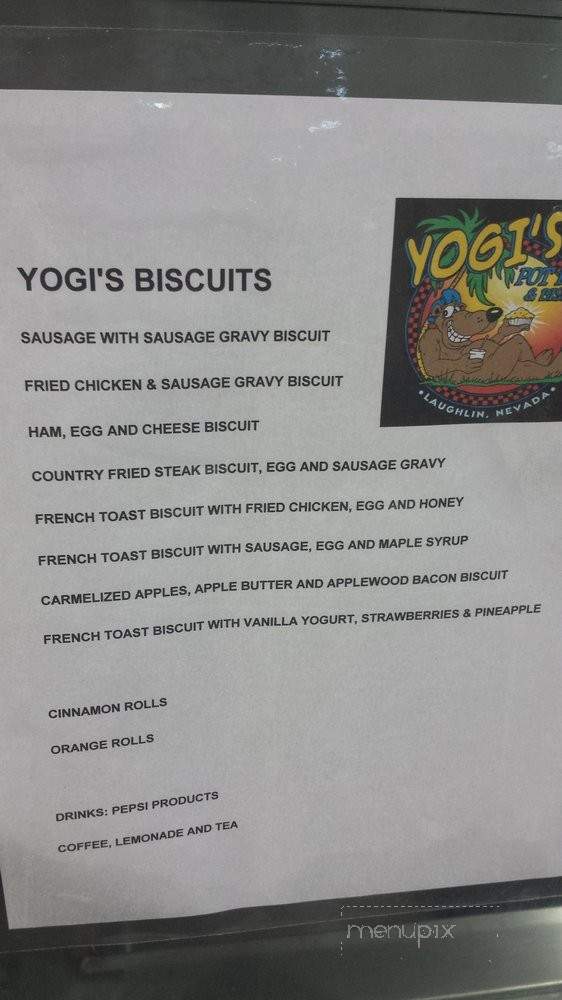 YOGI'S
POT
& BIS
LAUGHLIN, NEVADA
YOGI'S BISCUITS
SAUSAGE WITH SAUSAGE GRAVY BISCUIT
FRIED CHICKEN & SAUSAGE GRAVY BISCUIT
HAM, EGG AND CHEESE BISCUIT
COUNTRY FRIED STEAK BISCUIT, EGG AND SAUSAGE GRAVY
FRENCH TOAST BISCUIT WITH FRIED CHICKEN, EGG AND HONEY
FRENCH TOAST BISCUIT WITH SAUSAGE, EGG AND MAPLE SYRUP
CARMELIZED APPLES, APPLE BUTTER AND APPLEWOOD BACON BISCUIT
FRENCH TOAST BISCUIT WITH VANILLA YOGURT, STRAWBERRIES & PINEAPPLE
CINNAMON ROLLS
ORANGE ROLLS
DRINKS: PEPSI PRODUCTS
COFFEE, LEMONADE AND TEA
menupix